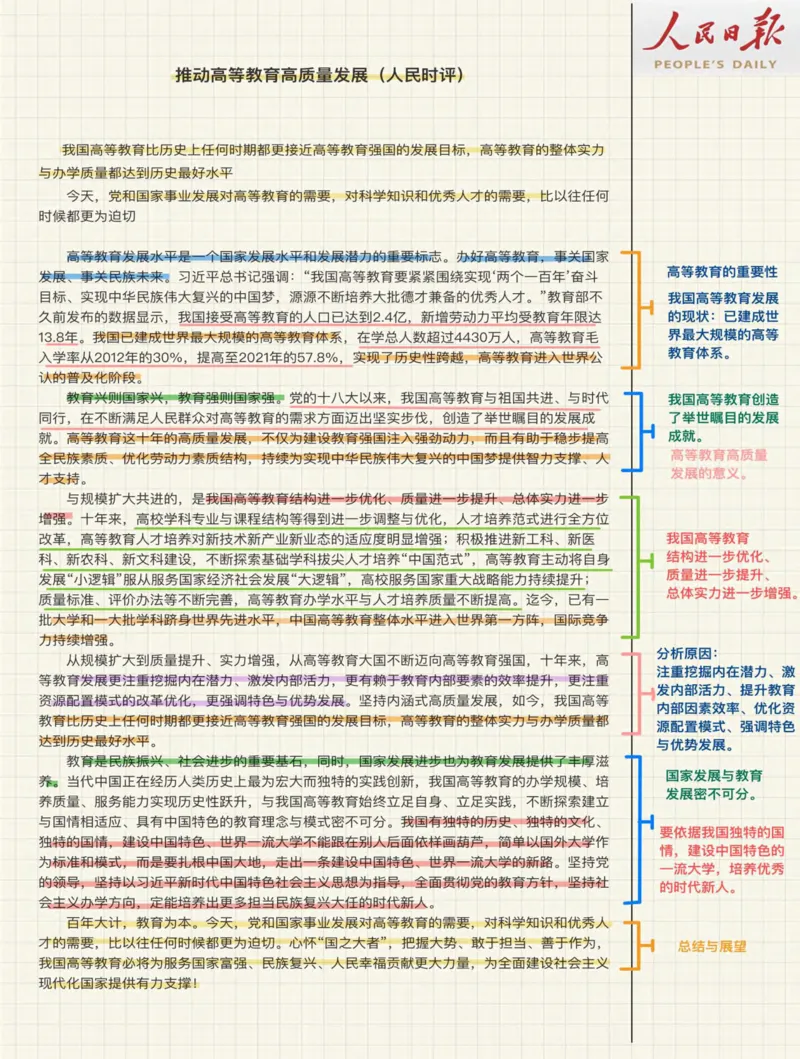 人民日报
PEOPLE'S DAILY
推动高等教育高质量发展（人民时评）
我国高等教育比历史上任何时期都更接近高等教育强国的发展目标，高等教育的整体实力
与办学质量都达到历史最好水平
今天，党和国家事业发展对高等教育的需要，对科学知识和优秀人才的需要，比以往任何
时候都更为迫切
高等教育发展水平是一个国家发展水平和发展潜力的重要标志。办好高等教育，事关国家
发展、事关民族未来。习近平总书记强调：“我国高等教育要紧紧围绕实现‘两个一百年’奋斗
目标、实现中华民族伟大复兴的中国梦，源源不断培养大批德才兼备的优秀人才。”教育部不
久前发布的数据显示，我国接受高等教育的人口已达到2.4亿，新增劳动力平均受教育年限达
13.8年。我国已建成世界最大规模的高等教育体系，在学总人数超过4430万人，高等教育毛
入学率从2012年的30%，提高至2021年的57.8%，实现了历史性跨越，高等教育进入世界公
认的普及化阶段。
教育兴则国家兴，教育强则国家强。党的十八大以来，我国高等教育与祖国共进、与时代
同行，在不断满足人民群众对高等教育的需求方面迈出坚实步伐，创造了举世瞩目的发展成
就。高等教育这十年的高质量发展，不仅为建设教育强国注入强劲动力，而且有助于稳步提高
全民族素质、优化劳动力素质结构，持续为实现中华民族伟大复兴的中国梦提供智力支撑、人
才支持。
与规模扩大共进的，是我国高等教育结构进一步优化、质量进一步提升、总体实力进一步
增强。十年来，高校学科专业与课程结构等得到进一步调整与优化，人才培养范式进行全方位
改革，高等教育人才培养对新技术新产业新业态的适应度明显增强；积极推进新工科、新医
科、新农科、新文科建设，不断探索基础学科拔尖人才培养“中国范式”，高等教育主动将自身
发展“小逻辑”服从服务国家经济社会发展“大逻辑”，高校服务国家重大战略能力持续提升；
质量标准、评价办法等不断完善，高等教育办学水平与人才培养质量不断提高。迄今，已有一
批大学和一大批学科跻身世界先进水平，中国高等教育整体水平进入世界第一方阵，国际竞争
力持续增强。
从规模扩大到质量提升、实力增强，从高等教育大国不断迈向高等教育强国，十年来，高
等教育发展更注重挖掘内在潜力、激发内部活力，更有赖于教育内部要素的效率提升，更注重
资源配置模式的改革优化，更强调特色与优势发展。坚持内涵式高质量发展，如今，我国高等
教育比历史上任何时期都更接近高等教育强国的发展目标，高等教育的整体实力与办学质量都
达到历史最好水平。
教育是民族振兴、社会进步的重要基石，同时，国家发展进步也为教育发展提供了丰厚滋
养。当代中国正在经历人类历史上最为宏大而独特的实践创新，我国高等教育的办学规模、培
养质量、服务能力实现历史性跃升，与我国高等教育始终立足自身、立足实践，不断探索建立
与国情相适应、具有中国特色的教育理念与模式密不可分。我国有独特的历史、独特的文化、
独特的国情，建设中国特色、世界一流大学不能跟在别人后面依样画葫芦，简单以国外大学作
为标准和模式，而是要扎根中国大地，走出一条建设中国特色、世界一流大学的新路。坚持党
的领导，坚持以习近平新时代中国特色社会主义思想为指导，全面贯彻党的教育方针，坚持社
会主义办学方向，定能培养出更多担当民族复兴大任的时代新人。
百年大计，教育为本。今天，党和国家事业发展对高等教育的需要，对科学知识和优秀人
才的需要，比以往任何时候都更为迫切。心怀“国之大者”，把握大势、敢于担当、善于作为，
我国高等教育必将为服务国家富强、民族复兴、人民幸福贡献更大力量，为全面建设社会主义
现代化国家提供有力支撑！
高等教育的重要性
我国高等教育发展
的现状：已建成世
界最大规模的高等
教育体系。
我国高等教育创造
了举世瞩目的发展
成就。
高等教育高质量
发展的意义。
我国高等教育
结构进一步优化、
质量进一步提升、
总体实力进一步增强。
分析原因：
注重挖掘内在潜力、激
发内部活力、提升教育
内部因素效率、优化资
源配置模式、强调特色
与优势发展。
国家发展与教育
发展密不可分。
要依据我国独特的国
情，建设中国特色的
一流大学，培养优秀
的时代新人。
总结与展望